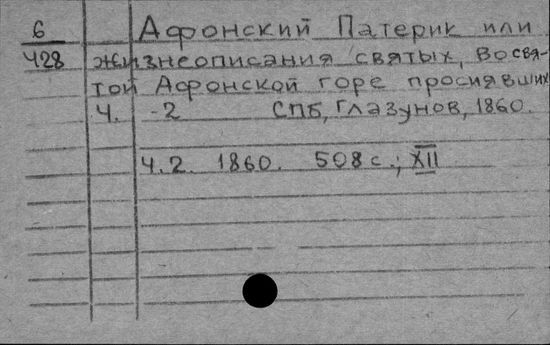 6 Афонский Патерик или
428 жизнеописания святых, во свя-
той Афонской горе просиявших
Ч. -2 СПБ, Глазунов, 1860.
Ч.2. 1860. 508 с.; XII